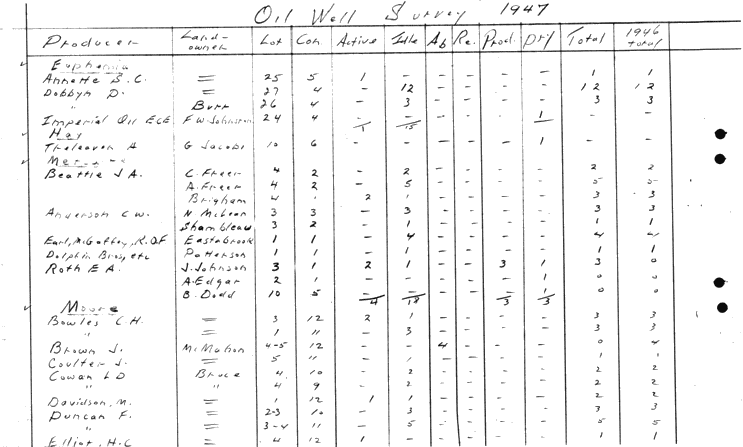 Oil Well Survey 1947
Producer Land-owner Lot Con Active Idle Ab Re. Prod. Dry Total 1946 Total
Euphemia
Annette B.C. = 25 5 1 - - - - - 1 1
Dobbyn D. = 27 4 - 12 - - - - 12 12
" Burr 26 4 - 3 - - - - 3 3
Imperial Oil F.W. Johnston 24 4 - - - - - 1 - -
1 15 1
Hay
Theleaven A G Jacobi 10 6 - - - - - 1 - -
Beattie J.A. C. Freer 4 2 - 2 - - - - 2 2
A. Freer 4 2 - 5 - - - - 5 5
Brigham 4 1 2 1 - - - - 3 3
Anderson C.W. N. McLean 3 3 - 3 - - - - 3 3
Shambleau 3 2 - 1 - - - - 1 1
Earl, McGaffey, R. OF Eastabrook 1 1 - 4 - - - - 4 4
Dolphin Bros, etc Patterson 1 1 - 1 - - - - 1 1
Roth E A. J. Johnson 3 1 2 1 - - 3 1 3 0
A. Edgar 2 1 - - - - - 1 0 0
B. Dodd 10 5 - - - - - 1 0 0
4 18 3 3
Moore
Bowles C.H. = 3 12 2 1 - - - - 3 3
" = 1 " - 3 - - - - 3 3
Brown J. McMahon 4-5 12 - - 4 - - - 0 4
Coulter J. = 5 " - 1 - - - - 1 1
Cowan L D Bruce 4 10 - 2 - - - - 2 2
" = 4 9 - 2 - - - - 2 2
Davidson, M. = 1 12 1 1 - - - - 2 2
Duncan F. = 2-3 10 - 3 - - - - 3 3
" = 3-4 11 - 5 - - - - 5 5
Elliot, H.C = 4 12 1 - - - - - 1 1